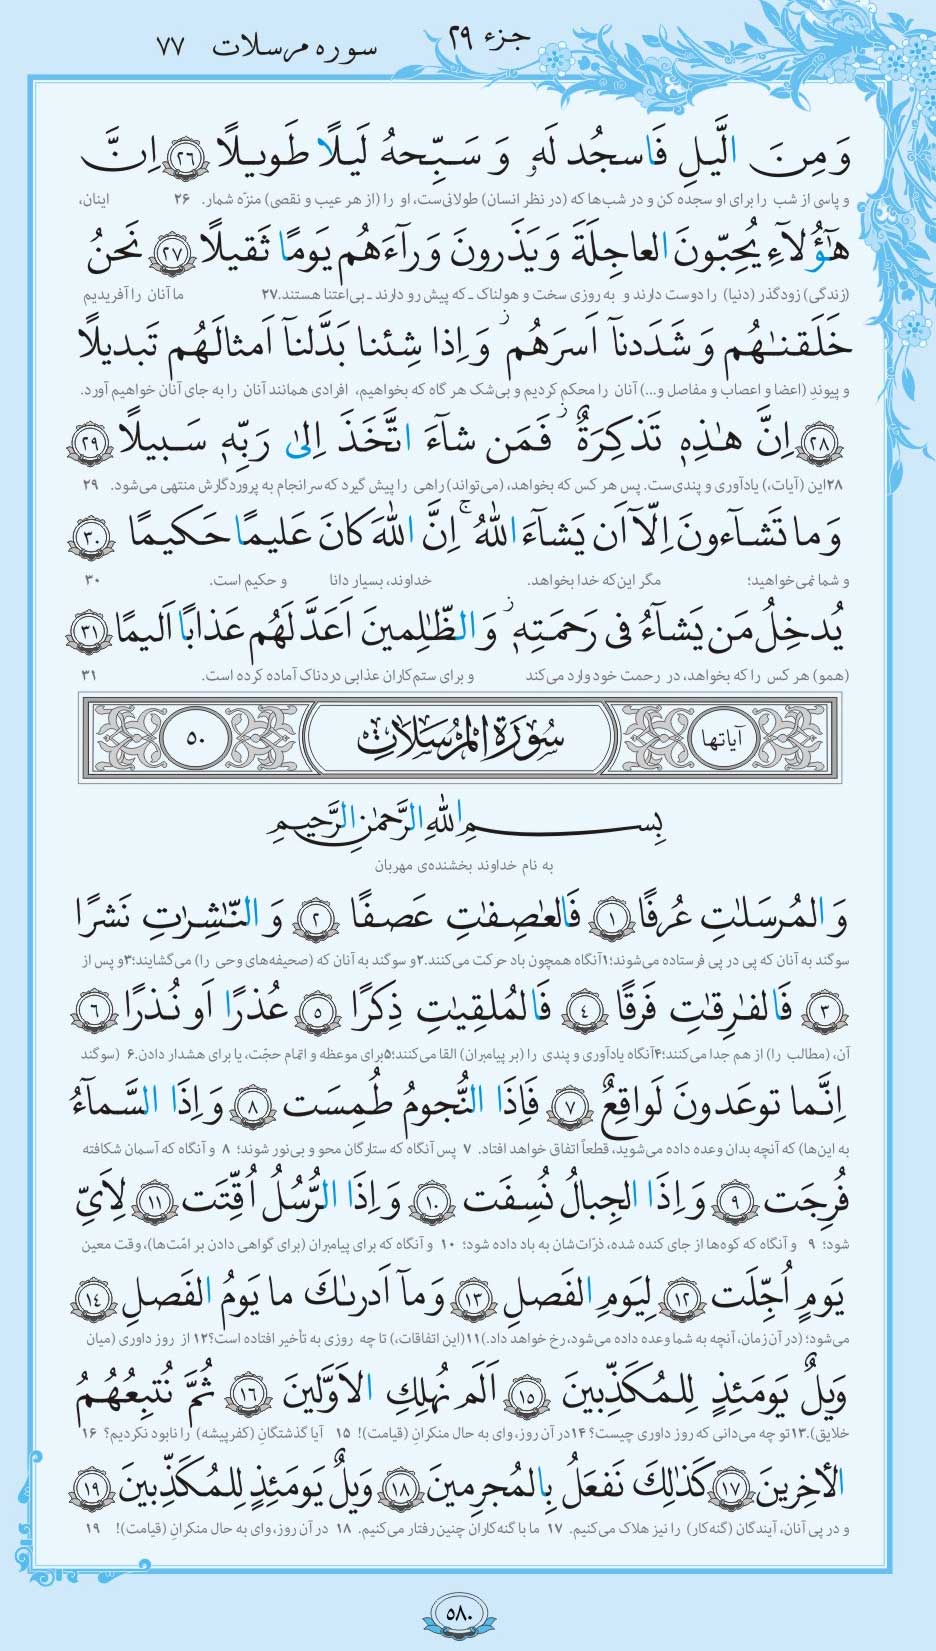 جزء ۲۹
سوره مرسلات ۷۷
وَ مِنَ الَّیلِ فَاسجُد لَهٗ وَ سَبِّحهُ لَیلًا طَویلًا ﴿۲۶﴾ اِنَّ
و پاسی از شب را برای او سجده کن و در شب‌ها که (در نظر انسان) طولانی‌ست، او را (از هر عیب و نقصی) منزّه شمار. ۲۶ اینان،
هٰٓؤُلآءِ یُحِبّونَ العاجِلَةَ وَ یَذَرونَ وَرآءَهُم یَومًا ثَقیلًا ﴿۲۷﴾ نَحنُ
(زندگی) زودگذر (دنیا) را دوست دارند و به روزی سخت و هولناک ـ که پیش رو دارند ـ بی‌اعتنا هستند.۲۷ ما آنان را آفریدیم
خَلَقنٰهُم وَ شَدَدنآ اَسرَهُم ۖ وَ اِذا شِئنا بَدَّلنآ اَمثالَهُم تَبدیلًا
و پیوندِ (اعضا و اعصاب و مفاصل و...) آنان را محکم کردیم و بی‌شک هر گاه که بخواهیم، افرادی همانند آنان را به جای آنان خواهیم آورد.
﴿۲۸﴾ اِنَّ هٰذِهٖ تَذکِرَةٌ ۖ فَمَن شآءَ اتَّخَذَ اِلیٰ رَبِّهٖ سَبیلًا ﴿۲۹﴾
۲۸ این (آیات،) یادآوری و پندی‌ست. پس هر کس که بخواهد، (می‌تواند) راهی را پیش گیرد که سرانجام به پروردگارش منتهی می‌شود. ۲۹
وَ ما تَشآءونَ اِلّآ اَن یَشآءَ اللهُ ۚ اِنَّ اللهَ کانَ عَلیمًا حَکیمًا ﴿۳۰﴾
و شما نمی‌خواهید؛ مگر این‌که خدا بخواهد. خداوند، بسیار دانا و حکیم است. ۳۰
یُدخِلُ مَن یَشآءُ فی رَحمَتِهٖ ۖ وَ الظّٰلِمینَ اَعَدَّ لَهُم عَذابًا اَلیمًا ﴿۳۱﴾
(همو) هر کس را که بخواهد، در رحمت خود وارد می‌کند و برای ستم‌کاران عذابی دردناک آماده کرده است. ۳۱
آیاتها سُورَةُ المُرسَلات ۵۰
بِسمِ اللهِ الرَّحمٰنِ الرَّحیمِ
به نام خداوند بخشنده‌ی مهربان
وَ المُرسَلٰتِ عُرفًا ﴿۱﴾ فَالعٰصِفٰتِ عَصفًا ﴿۲﴾ وَ النّٰشِرٰتِ نَشرًا
سوگند به آنان که پی در پی فرستاده می‌شوند؛۱آنگاه همچون باد حرکت می‌کنند.۲و سوگند به آنان که (صحیفه‌های وحی را) می‌گشایند؛۳و پس از
﴿۳﴾ فَالفٰرِقٰتِ فَرقًا ﴿۴﴾ فَالمُلقِیٰتِ ذِکرًا ﴿۵﴾ عُذرًا اَو نُذرًا ﴿۶﴾
آن، (مطالب را) از هم جدا می‌کنند؛۴آنگاه یادآوری و پندی را (بر پیامبران) القا می‌کنند؛۵برای موعظه و اتمام حجّت، یا برای هشدار دادن.۶ (سوگند
اِنَّما توعَدونَ لَواقِعٌ ﴿۷﴾ فَاِذَا النُّجومُ طُمِسَت ﴿۸﴾ وَ اِذَا السَّمآءُ
به این‌ها) که آنچه بدان وعده داده می‌شوید، قطعاً اتفاق خواهد افتاد. ۷ پس آنگاه که ستارگان محو و بی‌نور شوند؛ ۸ و آنگاه که آسمان شکافته
فُرِجَت ﴿۹﴾ وَ اِذَا الجِبالُ نُسِفَت ﴿۱۰﴾ وَ اِذَا الرُّسُلُ اُقِّتَت ﴿۱۱﴾ لِاَیِّ
شود؛ ۹ و آنگاه که کوه‌ها از جای کنده شده، ذرّات‌شان به باد داده شود؛ ۱۰ و آنگاه که برای پیامبران (برای گواهی دادن بر امّت‌ها)، وقت معین
یَومٍ اُجِّلَت ﴿۱۲﴾ لِیَومِ الفَصلِ ﴿۱۳﴾ وَ مآ اَدرىٰکَ ما یَومُ الفَصلِ ﴿۱۴﴾
می‌شود؛ (در آن زمان، آنچه به شما وعده داده می‌شود، رخ خواهد داد.)۱۱(این اتفاقات،) تا چه روزی به تأخیر افتاده است؟۱۲ از روز داوری (میان
وَیلٌ یَومَئِذٍ لِلمُکَذِّبینَ ﴿۱۵﴾ اَلَم نُهلِکِ الاَوَّلینَ ﴿۱۶﴾ ثُمَّ نُتبِعُهُمُ
خلایق).۱۳تو چه می‌دانی که روز داوری چیست؟ ۱۴در آن روز، وای به حال منکرانِ (قیامت)! ۱۵ آیا گذشتگانِ (کفرپیشه) را نابود نکردیم؟ ۱۶
الـٔاخِرینَ ﴿۱۷﴾ کَذٰلِکَ نَفعَلُ بِالمُجرِمینَ ﴿۱۸﴾ وَیلٌ یَومَئِذٍ لِلمُکَذِّبینَ ﴿۱۹﴾
و در پی آنان، آیندگان (گنه‌کار) را نیز هلاک می‌کنیم. ۱۷ ما با گنه‌کاران چنین رفتار می‌کنیم. ۱۸ در آن روز، وای به حال منکرانِ (قیامت)! ۱۹
۵۸۰